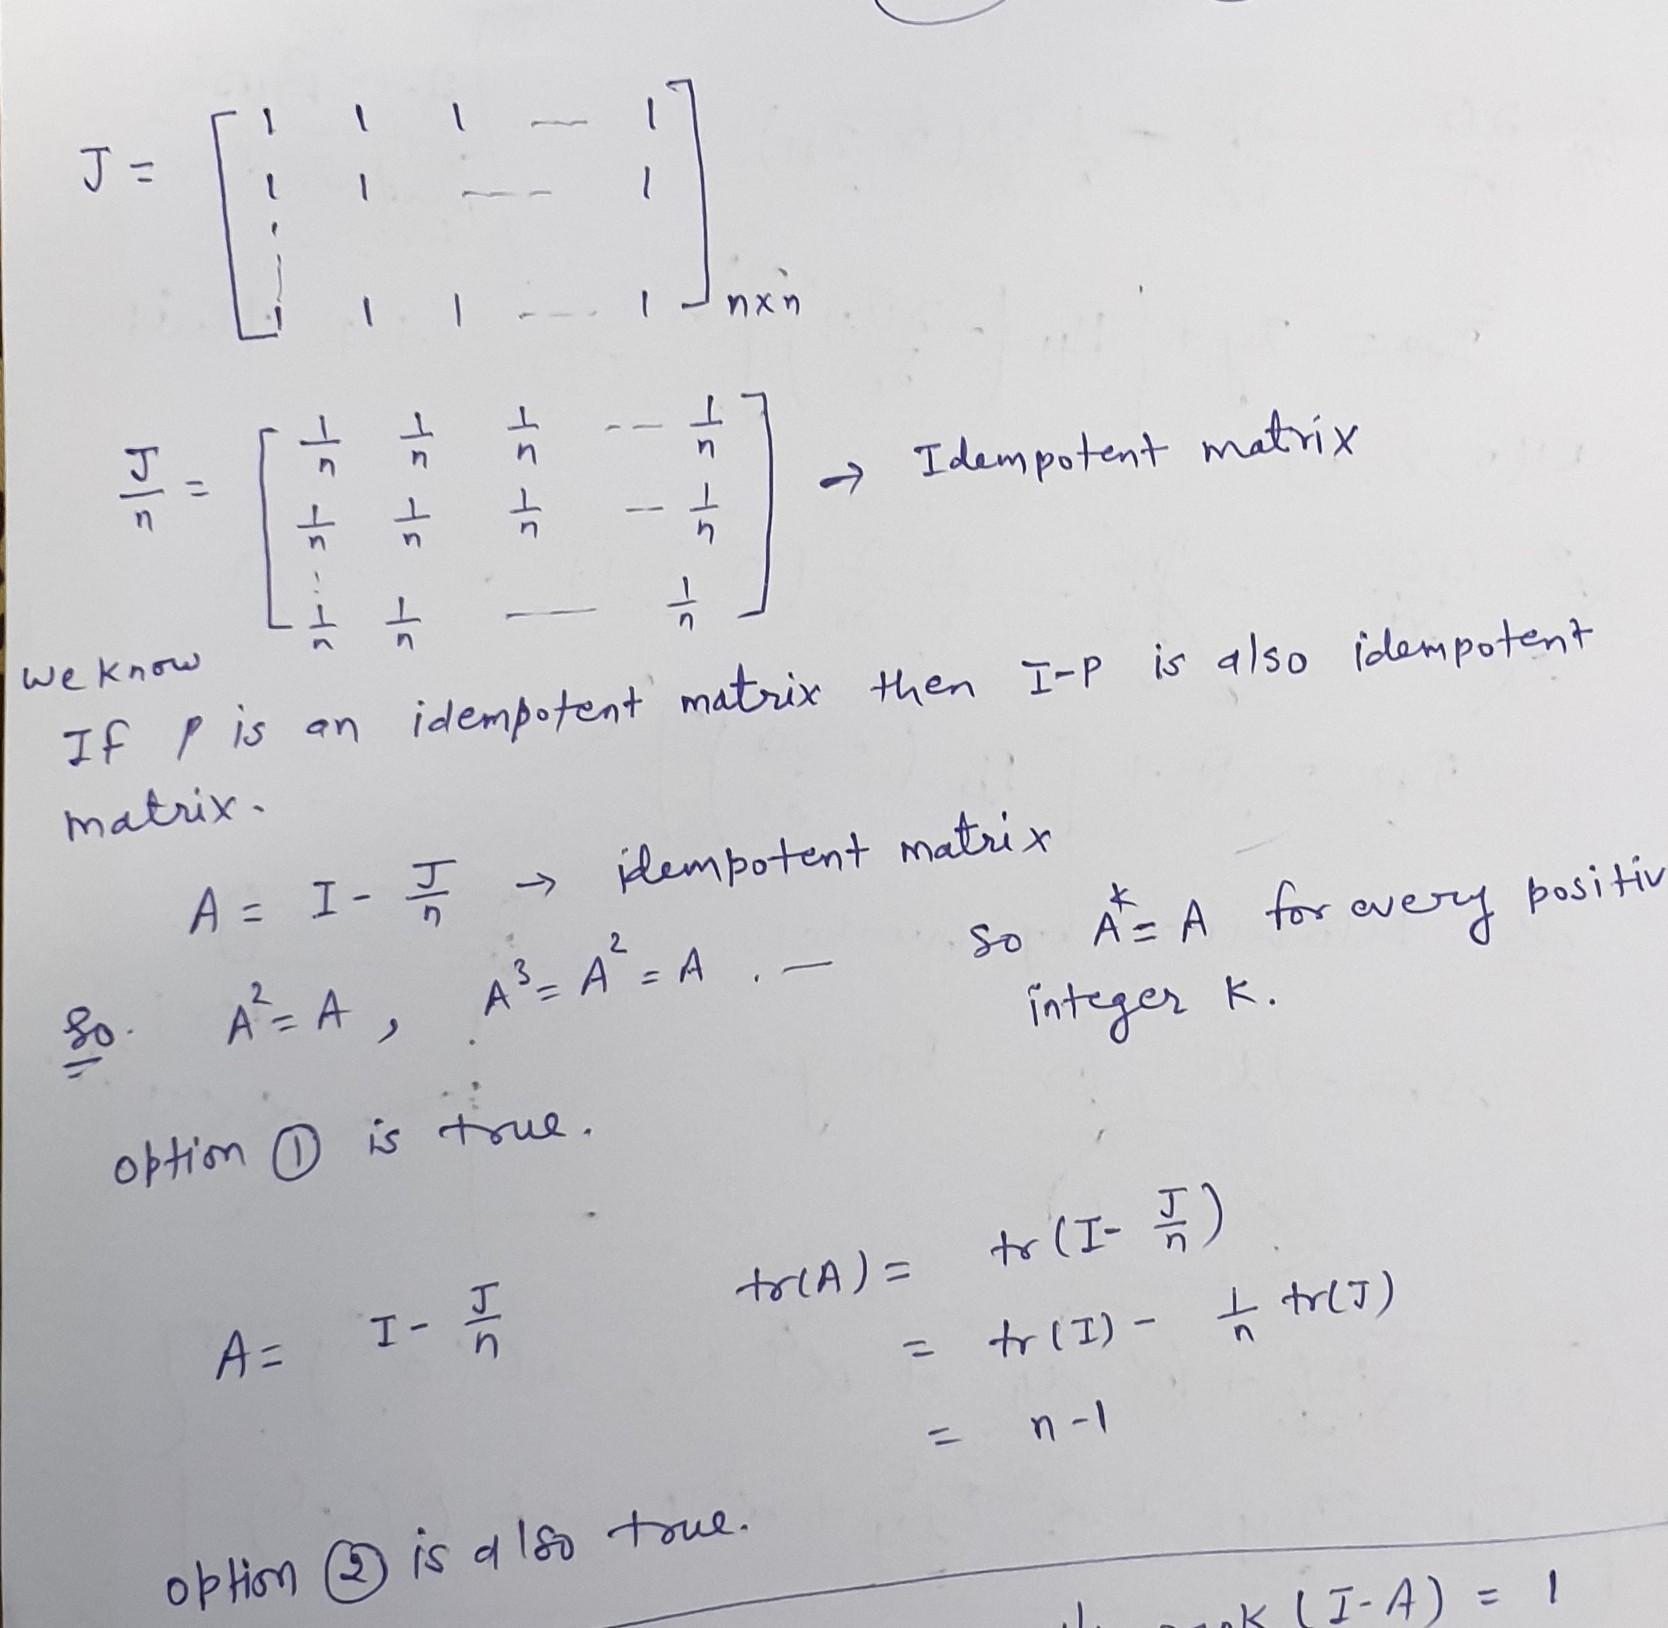 J = [ 1 1 1 — 1
1 1 ---- 1
⋮
1 1 1 ---- 1 ] n×n
J/n = [ 1/n 1/n 1/n -- 1/n
1/n 1/n 1/n -- 1/n → Idempotent matrix
⋮
1/n 1/n —— 1/n ]
we know
If P is an idempotent matrix then I-P is also idempotent
matrix.
A = I - J/n → idempotent matrix
So. A² = A , A³ = A² = A . — so Aᵏ = A for every positiv
integer K.
option ① is true.
A = I - J/n tr(A) = tr(I - J/n)
= tr(I) - 1/n tr(J)
= n-1
option ② is also true.
(I-A) = 1